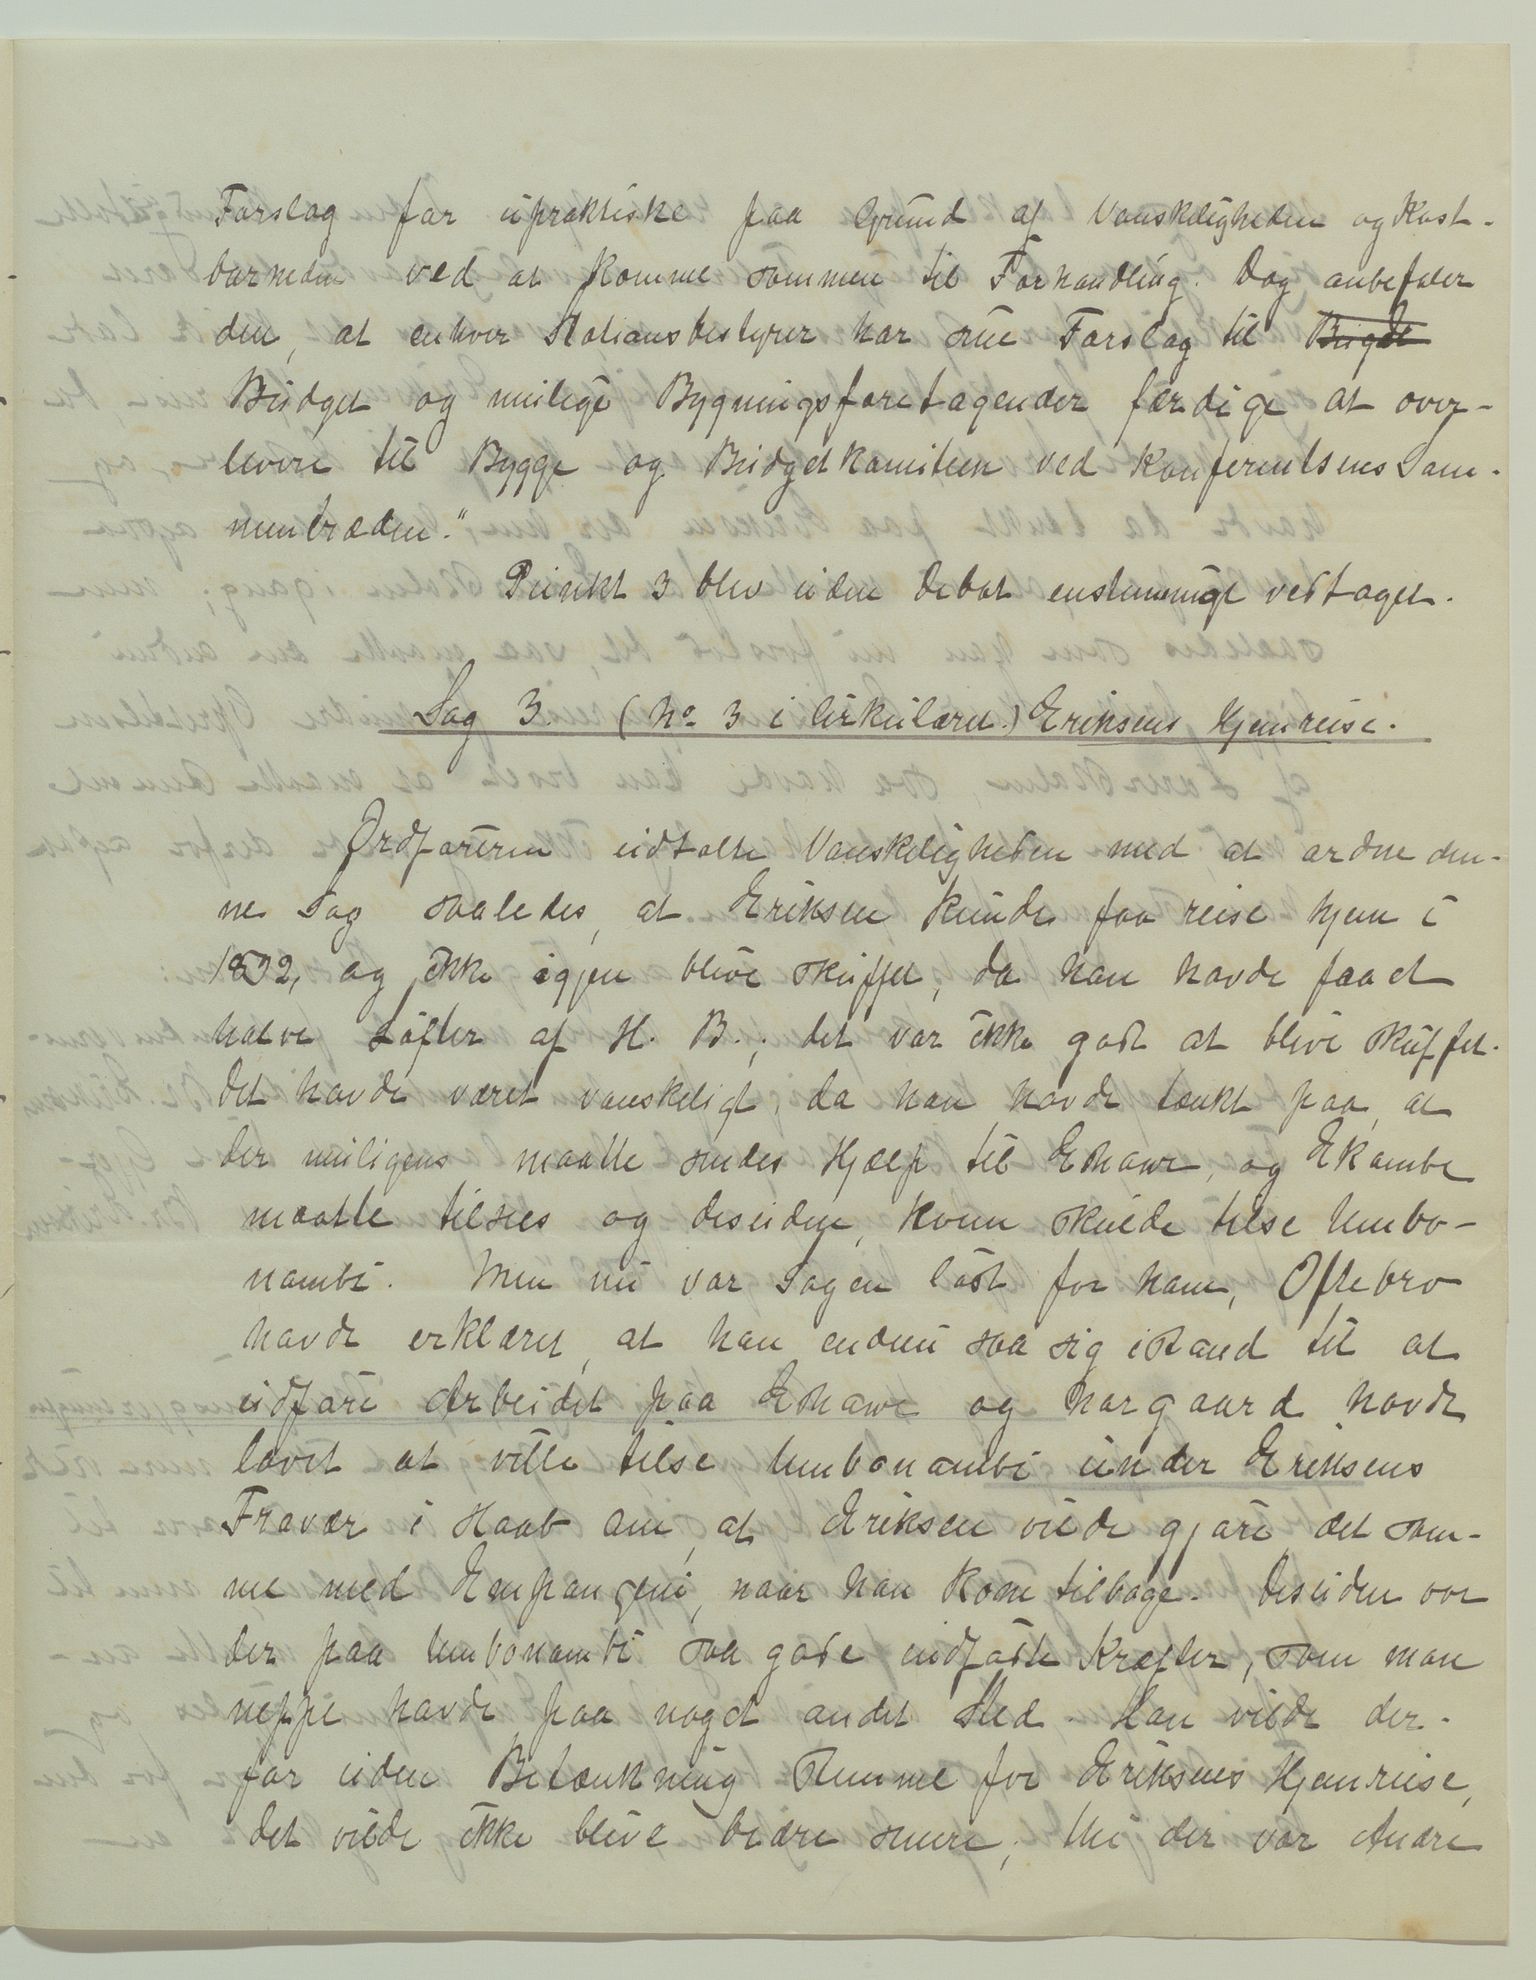 Forslag for upraktiske paa Grund af Vanskeligheden og Kost-
barheden ved at komme sammen til Forhandling. Dog anbefaler
den, at enhver Stationsbestyrer har sine Forslag til Bugdet
Budget og mulige Bygningsforetagender færdige at over-
levere til Bygge og Budgetkomiteen ved Konferentsens Sam-
mentræden."
Punkt 3 blev uden Debat enstemmigt vedtaget.
Sag 3. (No 3 i Cirkulæret.) Eriksens Hjemreise.
Ordføreren udtalte Vanskeligheden med, at ordne den-
ne Sag saaledes, at Eriksen kunde faa reise hjem i
1892, og ikke igjen blive skuffet, da han havde faaet
halve Løfter af H. B.; det var ikke godt at blive skuffet.
Det havde været vanskeligt, da han havde tænkt paa, at
der muligens maatte sendes Hjælp til Ekhowe, og Ekombe
maatte tilsees og desuden, hvem skulde tilse Umbo-
nambi. Men nu var Sagen løst for ham, Oftebro
havde erklæret, at han endnu saa sig istand til at
udføre Arbeidet paa Ekhowe og Norgaard havde
lovet at ville tilse Umbonambi under Eriksens
Fravær i Haab om, at Eriksen vilde gjøre det sam-
me med Empangeni, naar han kom tilbage. Desuden var
der paa Umbonambi saa gode indfødte Kræfter, som man
neppe havde paa noget andet Sted. Han vilde der-
for uden Betænkning stemme for Eriksens Hjemreise,
det vilde ikke blive bedre senere, thi der var Andre